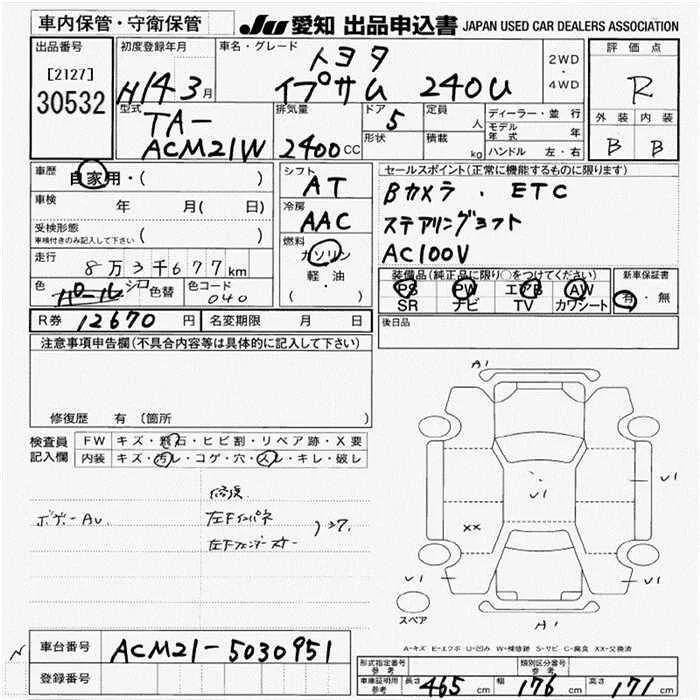 車内保管・守衛保管
JU 愛知 出品申込書 JAPAN USED CAR DEALERS ASSOCIATION
出品番号
[2127]
30532
初度登録年月
H14 3月
車名・グレード
トヨタ
イプサム 240U
2WD
・
4WD
評価点
R
外装 内装
B B
型式
TA-
ACM21W
排気量
2400CC
ドア
5
形状
定員
人
積載
kg
ディーラー・並行
モデル年式 年
ハンドル 左・右
車歴
自家用・( )
車検 年 月( 日)
受検形態
車検付きのみ記入して下さい ( )
走行
8万3千677km
色
パール シロ
色替
色コード
040
シフト
AT
冷房
AAC
燃料
ガソリン
軽・油
( ・ )
セールスポイント(正常に機能するものに限ります)
Bカメラ . ETC
ステアリングシフト
AC100V
装備品(純正品に限り○をつけてください)
PS PW エアB AW
SR ナビ TV カワシート
新車保証書
有・無
R券 12670円
名変期限 月 日
後日品
注意事項申告欄(不具合内容等は具体的に記入して下さい)
修復歴 有 〔箇所
検査員
記入欄
FW キズ・飛石・ヒビ割・リペア跡・X要
内装 キズ・汚レ・コゲ・穴・スレ・キレ・破レ
ボデーAu.
修復
左Fインパネ
左Fフェンダー
A1
U1
U1
XX
U1
U1
スペア
A1
A-キズ E-エクボ U-凹み W-補修跡 S-サビ C-腐食 XX-交換済
車台番号 ACM21-5030951
登録番号
型式指定番号
参考
類別区分番号
参考
車庫証明用
参考
長さ 465cm 幅 176cm 高さ 171cm